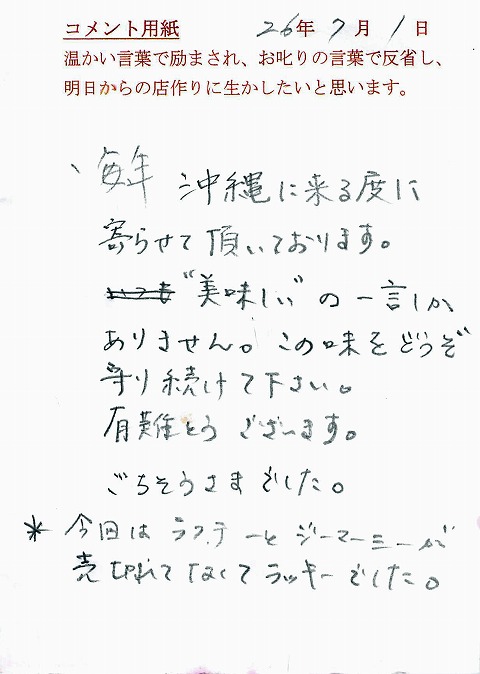 コメント用紙 26年7月1日
温かい言葉で励まされ、お叱りの言葉で反省し、
明日からの店作りに生かしたいと思います。
、毎年 沖縄に来る度に
寄らせて頂いております。
いつも“美味しい”の一言しか
ありません。この味をどうぞ
守り続けて下さい。
有難とうございます。
ごちそうさまでした。
* 今回はラフテーとジーマーミーが
売切れてなくてラッキーでした。